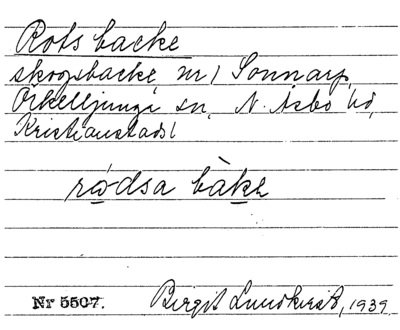 Rots backe
skogsbacke nr 1 Sonnarp,
Örkelljunga sn, N. Åsbo hd,
Kristianstads l
rødsa bàkę
Nr 5507. Birgit Lundkvist, 1939